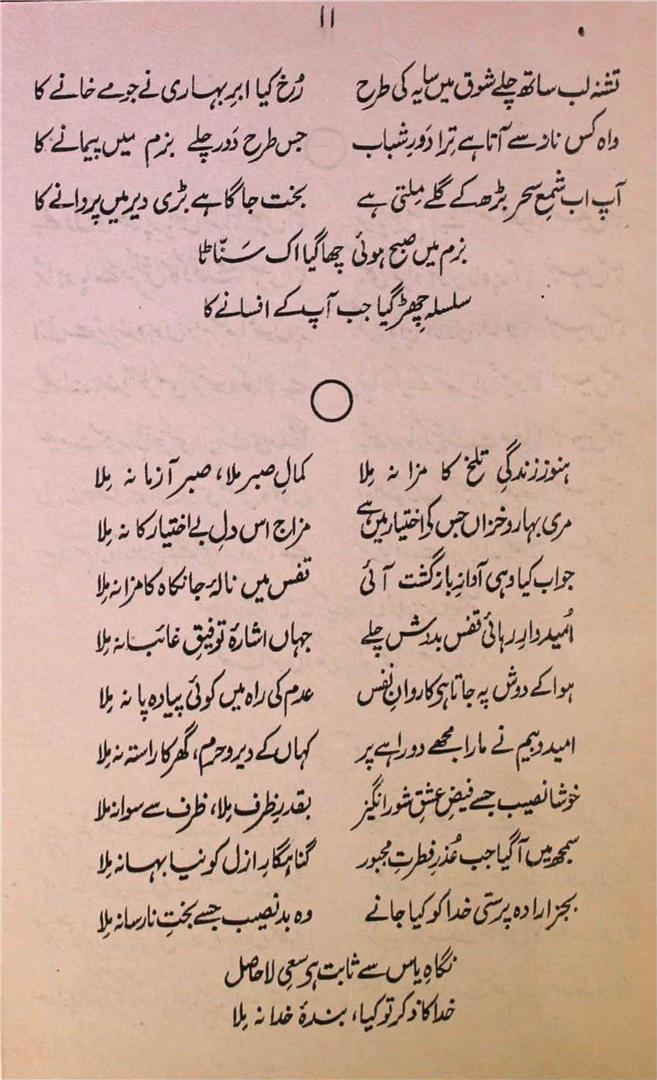 ۱۱
تشنہ لب ساتھ چلے شوق میں سایہ کی طرح رُخ کیا ابرِ بہاری نے جو مے خانے کا
واہ کس ناز سے آتا ہے ترا دَورِ شباب جس طرح دَور چلے بزم میں پیمانے کا
آپ اب شمعِ سحر بڑھ کے گلے مِلتی ہے بخت جاگا ہے بڑی دیر میں پروانے کا
بزم میں صبح ہوئی چھا گیا اک سَنّاٹا
سلسلہ چھِڑ گیا جب آپ کے افسانے کا
ہنوز زندگیِ تلخ کا مزا نہ مِلا کمالِ صبر مِلا، صبر آزما نہ مِلا
مری بہار و خزاں جس کے اختیار میں ہے مزاج اس دلِ بے اختیار کا نہ مِلا
جواب کیا وہی آوازِ بازگشت آئی قفس میں نالۂ جانکاہ کا مزا نہ مِلا
اُمیدوارِ رہائی قفس بدوش چلے جہاں اشارۂ توفیقِ غائبانہ مِلا
ہوا کے دوش پہ جاتا ہی کاروانِ نفس عدم کی راہ میں کوئی پیادہ پا نہ مِلا
امید و بیم نے مارا مجھے دوراہے پر کہاں کے دیر و حرم، گھر کا راستہ نہ مِلا
خوشا نصیب جسے فیضِ عشقِ شور انگیز بقدرِ ظرف مِلا، ظرف سے سوا نہ مِلا
سمجھ میں آگیا جب عُذرِ فطرتِ مجبور گناہگارِ ازل کو نیا بہانہ مِلا
بجز ارادہ پرستی خدا کو کیا جانے وہ بد نصیب جسے بختِ نارسا نہ مِلا
نگاہِ یاس سے ثابت ہی سعیِ لاحاصل
خدا کا ذکر تو کیا، بندۂ خدا نہ مِلا